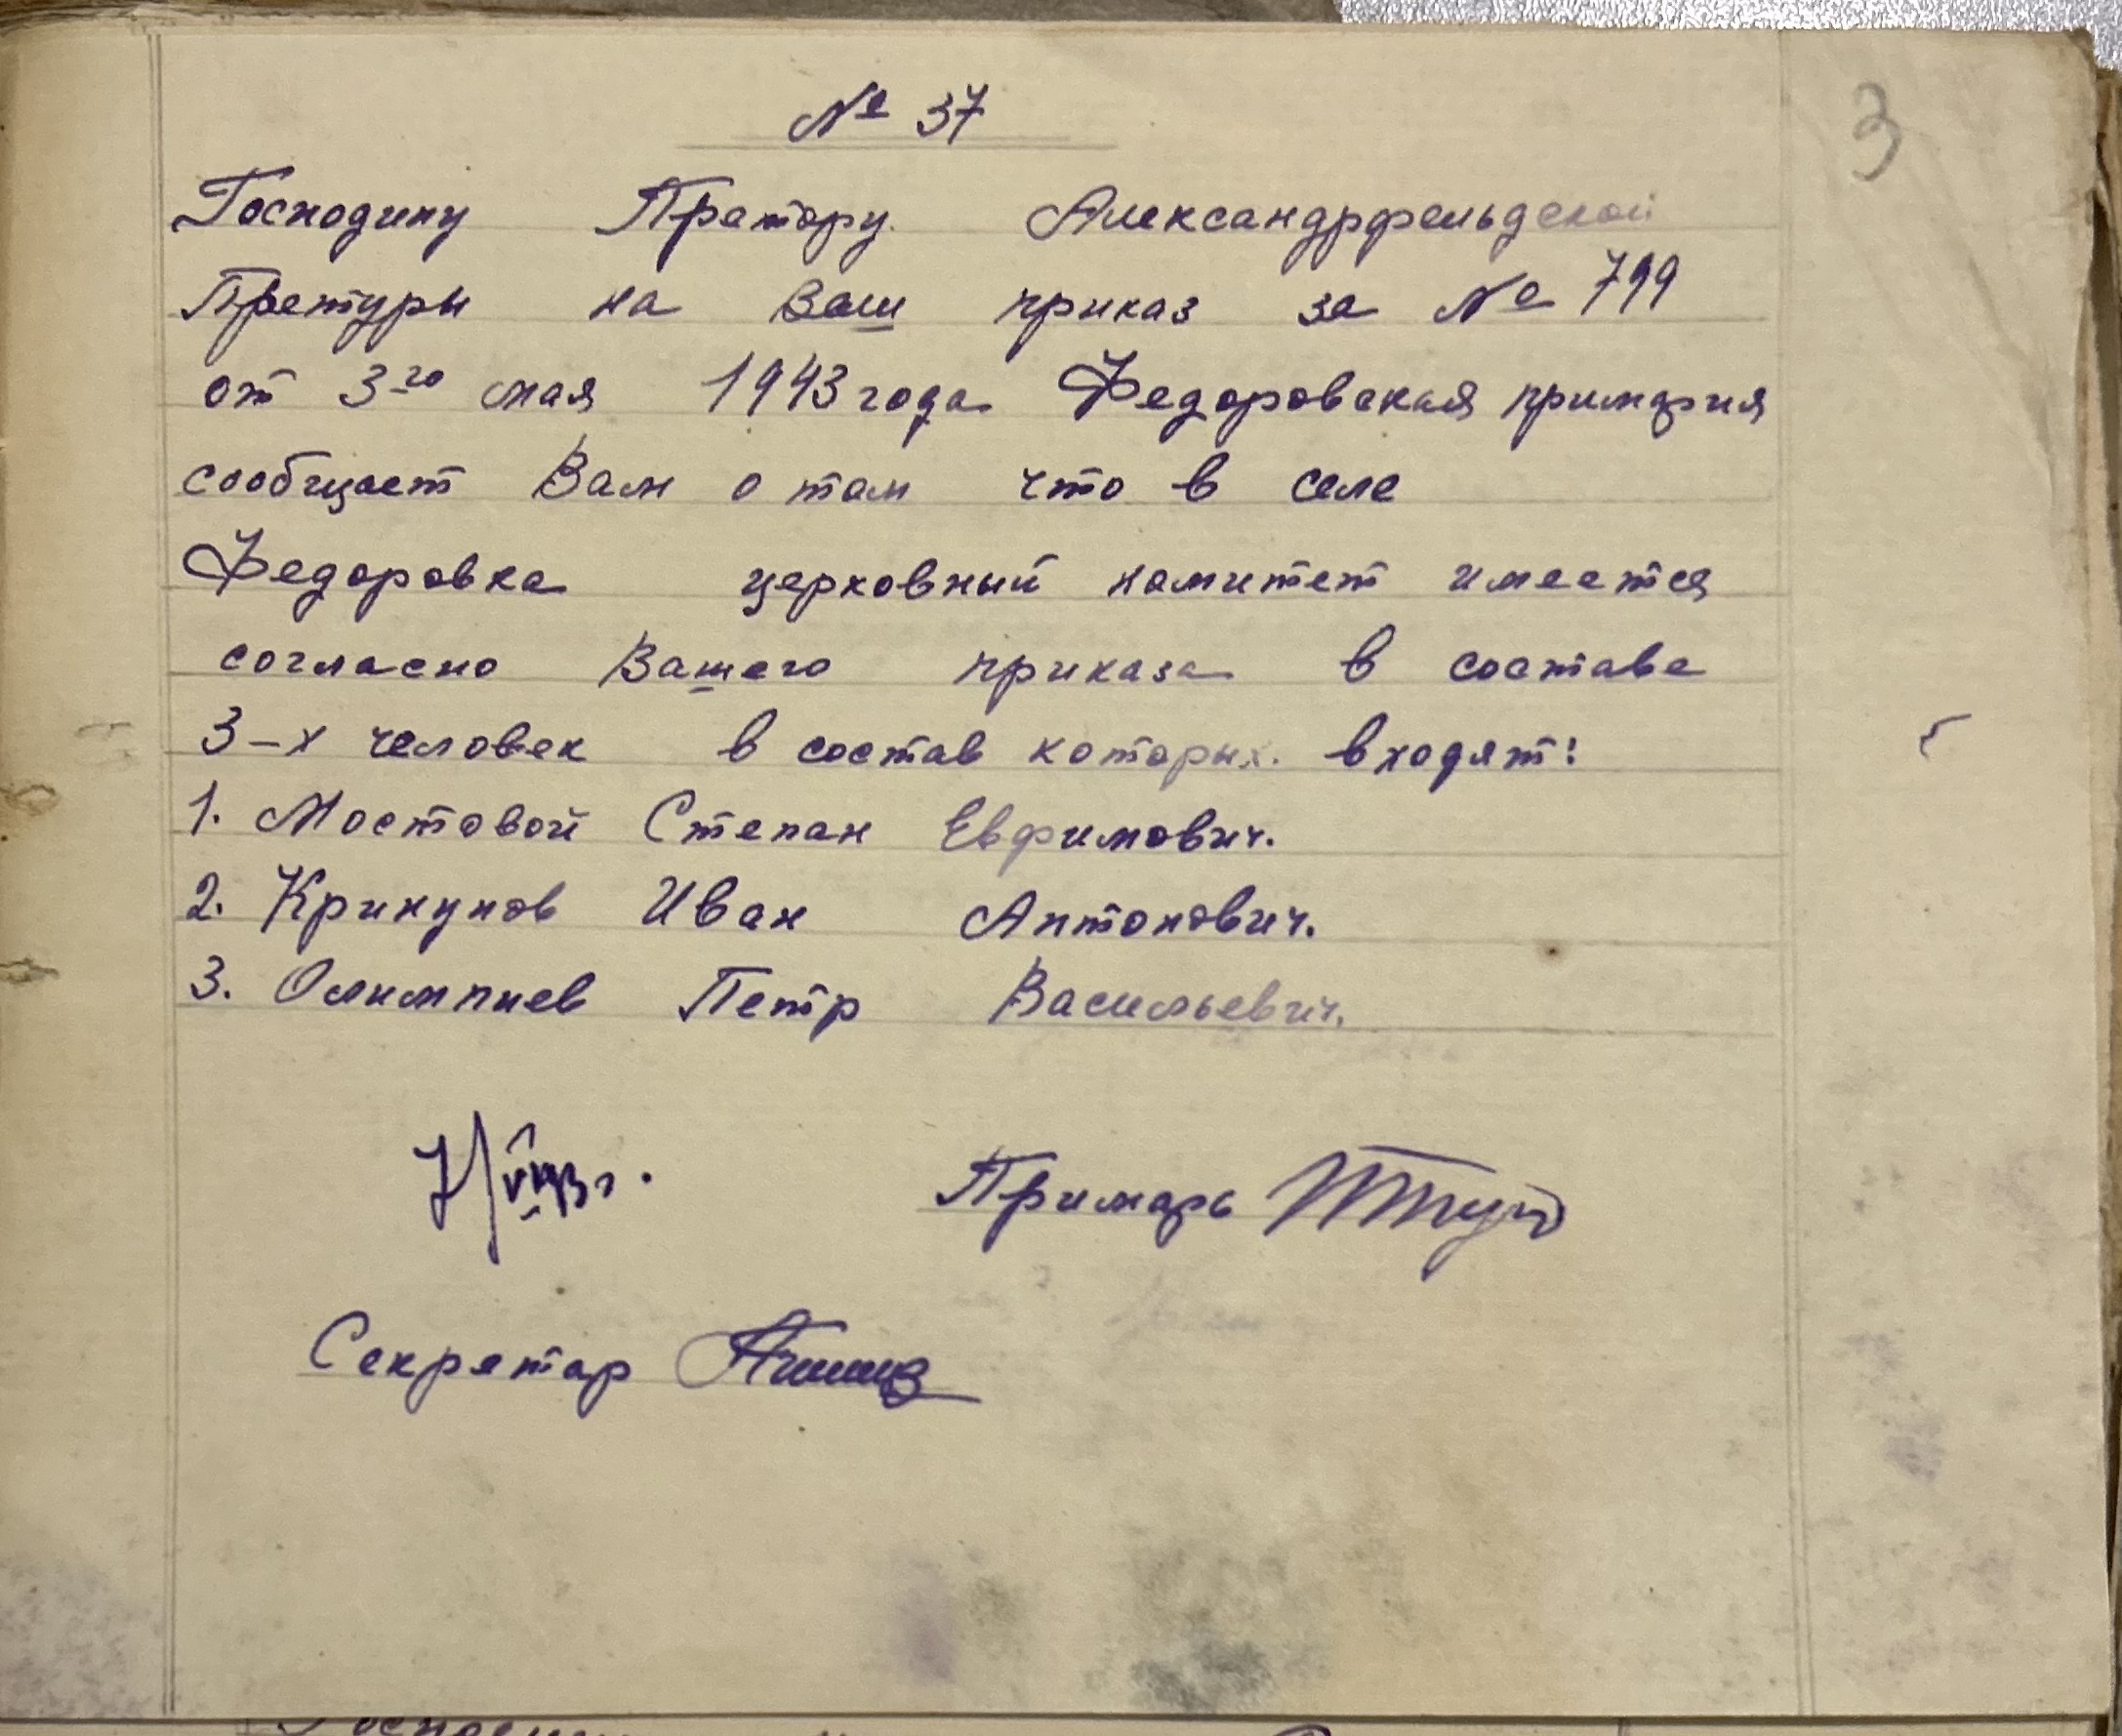 № 37
3
Господину Претору Александрфельдской
Претуры на Ваш приказ за № 799
от 3го мая 1943 года Федоровская примария
сообщает Вам о том что в селе
Федоровка церковный комитет имеется
согласно Вашего приказа в составе
3-х человек в состав которых входят:
1. Мостовой Степан Евфимович.
2. Крикунов Иван Антонович.
3. Олимпиев Петр Васильевич.
7/V 43 г.
Примарь
Секретар